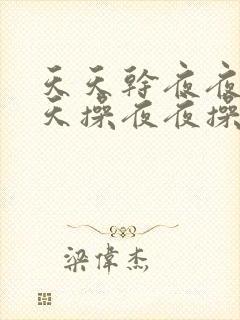 天天幹夜夜
天操夜夜操
梁偉杰